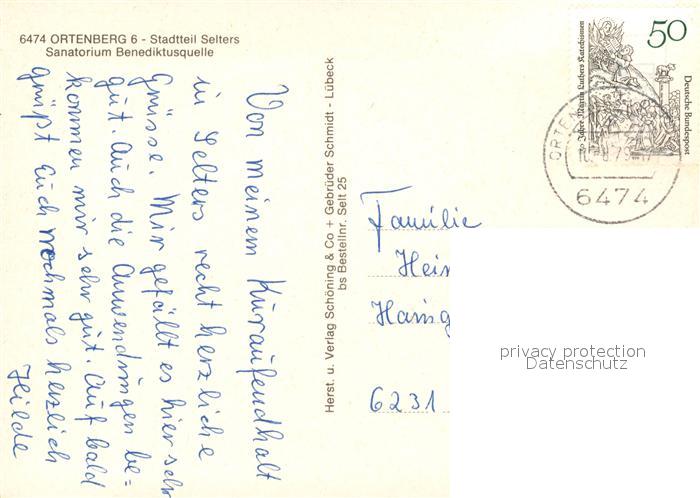 6474 ORTENBERG 6 - Stadtteil Selters
Sanatorium Benediktusquelle
Von meinem Kuraufendhalt
in Selters recht herzliche
Grüsse. Mir gefällt es hier sehr
gut. Auch die Anwendungen be=
kommen mir sehr gut. Auf bald
grüßt Euch nochmals herzlich
Hilde
Herst. u. Verlag Schöning & Co + Gebrüder Schmidt - Lübeck
bs Bestellnr. Selt 25
50
Deutsche Bundespost
Jahre Martin Luthers Katechismen
ORTEN
6474
Familie
Hein
6231
privacy protection
Datenschutz